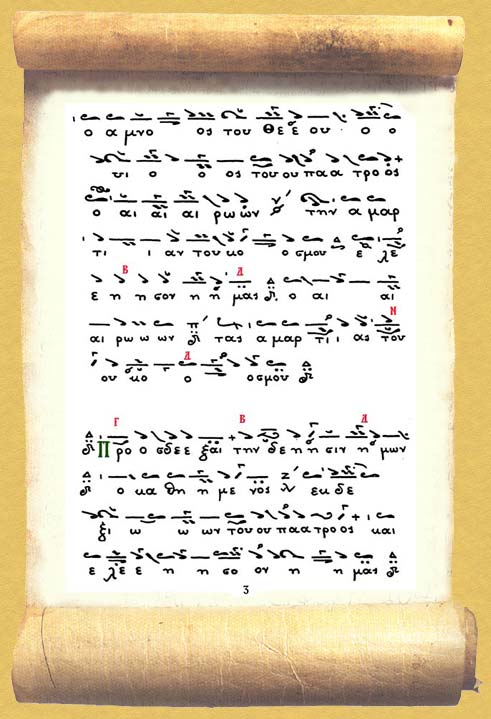 ο α μνο ος του Θε ε ου ο ο
υι ο ο ος του ου πα α τρο ος
ο αι αι αι ρω ων την α μαρ
τι ι αν του κο ο σμου ε λε
Β Δ
ε η η σον η η μας ο αι αι
Ν
αι ρω ω ων π' τας α μαρ τι ι ας του
Δ
ου κο ο ο σμου
Γ Β Δ
Προ ο σδε ε ξαι την δε η η σιν η μων
ο κα θη η με νος Ζ' εκ δε
ξι ω ω ων του ου πα α τρο ος και
ε λε ε η η σο ον η η μας
3